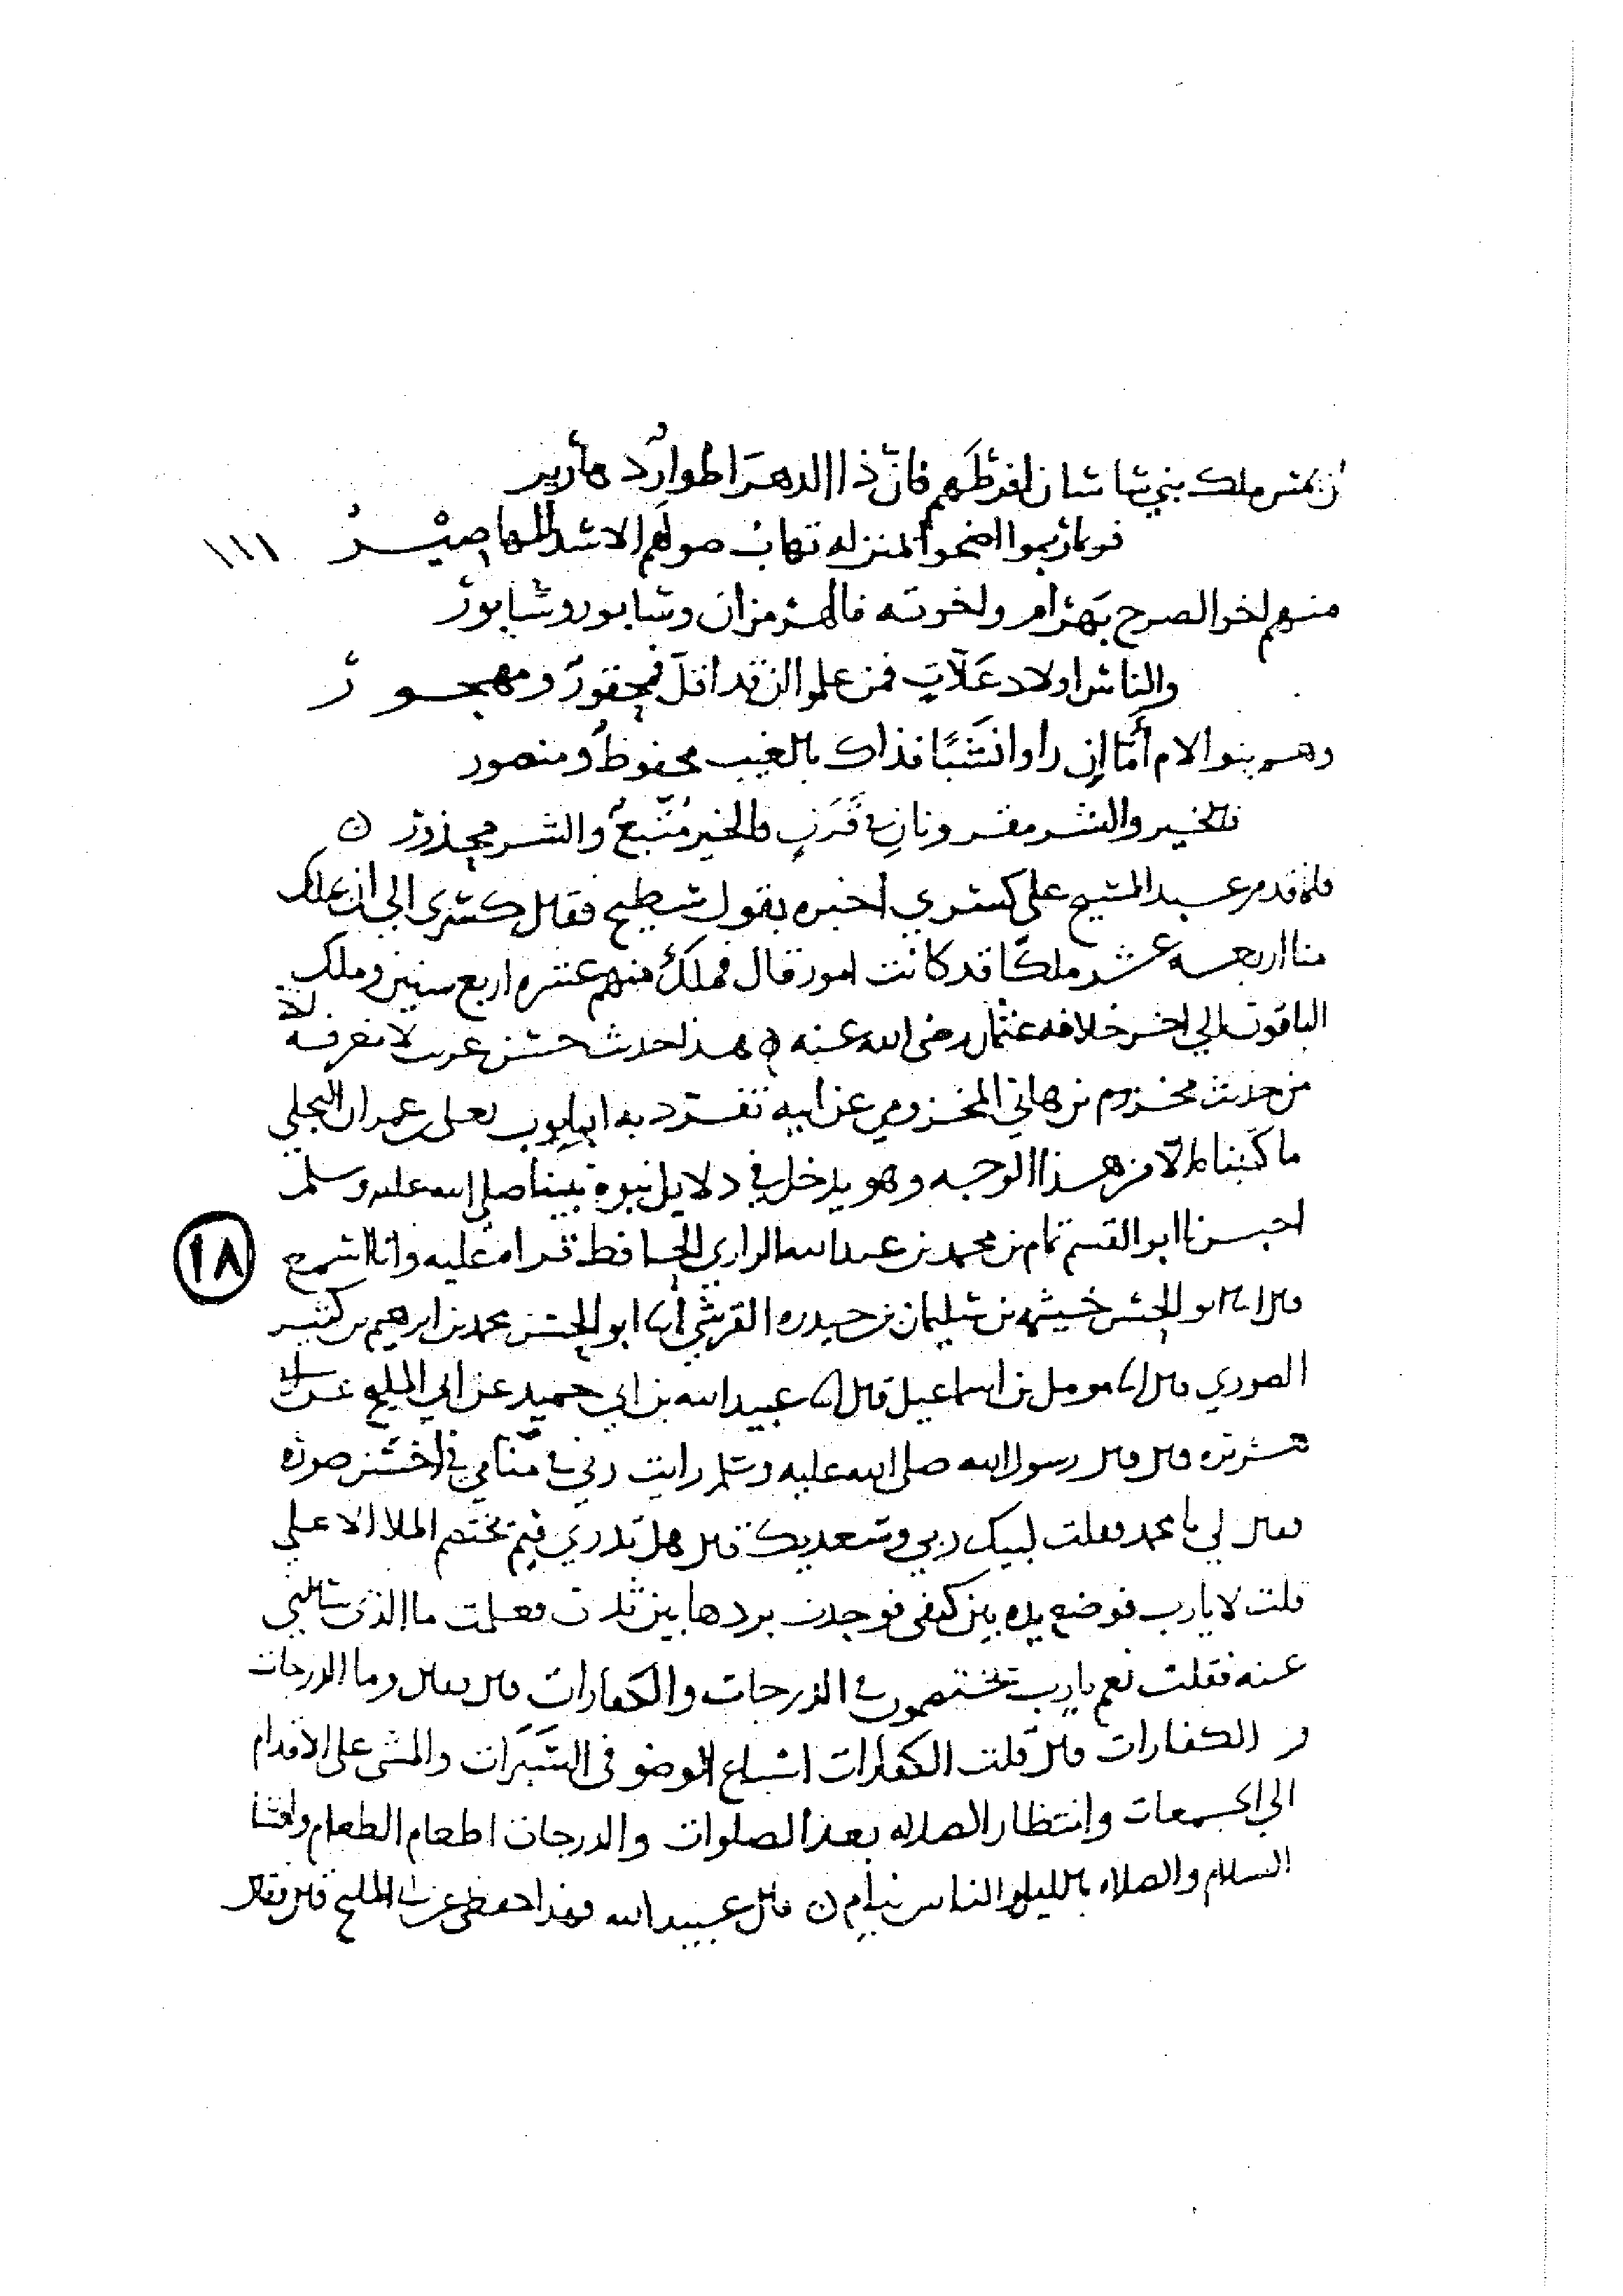 ان يمس ملك بني ساسان افرطهم فان ذا الدهر اطوار دهارير
فربما ربما اضحوا بمنزله تهاب صولهم الاسد المهاصير
منهم اخو الصرح بهرام واخوته فالهرمزان وسابور وسابور
والناس اولاد علات فمن علموا ان قد اقل فمحقور ومهجور
وهم بنو الام اما ان راوا نشبا فذاك بالغيب محفوظ ومنصور
فالخير والشر مقرونان في قرن فالخير متبع والشر محذور ○
فلما قدم عبد المسيح على كسرى اخبره بقول سطيح فقال كسرى الى ان يملك
منا اربعه عشر ملكا قد كانت امور قال فملك منهم عشره اربع سنين وملك
الباقون الى اخر خلافه عثمان رضى الله عنه ○ هذا حديث حسن غريب لا نعرفه الا
من حديث مخزوم بن هاني المخزومي عن ابيه تفرد به ابو ايوب يعلى بن عمران البجلي
ما كتبناه الا من هذا الوجه وهو يدخل في دلايل نبوة نبينا صلى الله عليه وسلم
اخبرنا ابو القسم تمام بن محمد بن عبد الله الرازي الحافظ قراه عليه وانا اسمع
قال ابنا ابو الحسن خيثمه بن سليمان بن حيدره القرشي ابنا ابو الحسن محمد بن ابرهيم بن كثير
الصوري قال ثنا مومل بن اسماعيل قال ثنا عبيد الله بن ابي حميد عن ابي المليح عن
قال قال رسول الله صلى الله عليه وسلم رايت ربي في منامي في احسن صوره
فقال لي يا محمد فقلت لبيك ربي وسعديك قال هل تدري فيم يختصم الملا الاعلي
قلت لا يا رب فوضع يده بين كتفي فوجدت بردها بين ثديي فعلمت ما الذي سالني
عنه فقلت نعم يا رب يختصمون في الدرجات والكفارات قال فقال وما الدرجات
والكفارات قال قلت الكفارات اسباغ الوضو في السبرات والمشي على الاقدام
الى الجمعات وانتظار الصلاه بعد الصلوات والدرجات اطعام الطعام وافشا
السلام والصلاه بالليل والناس نيام ○ قال عبيد الله فهذا حفظي عن ابي المليح قال فقال
١٨